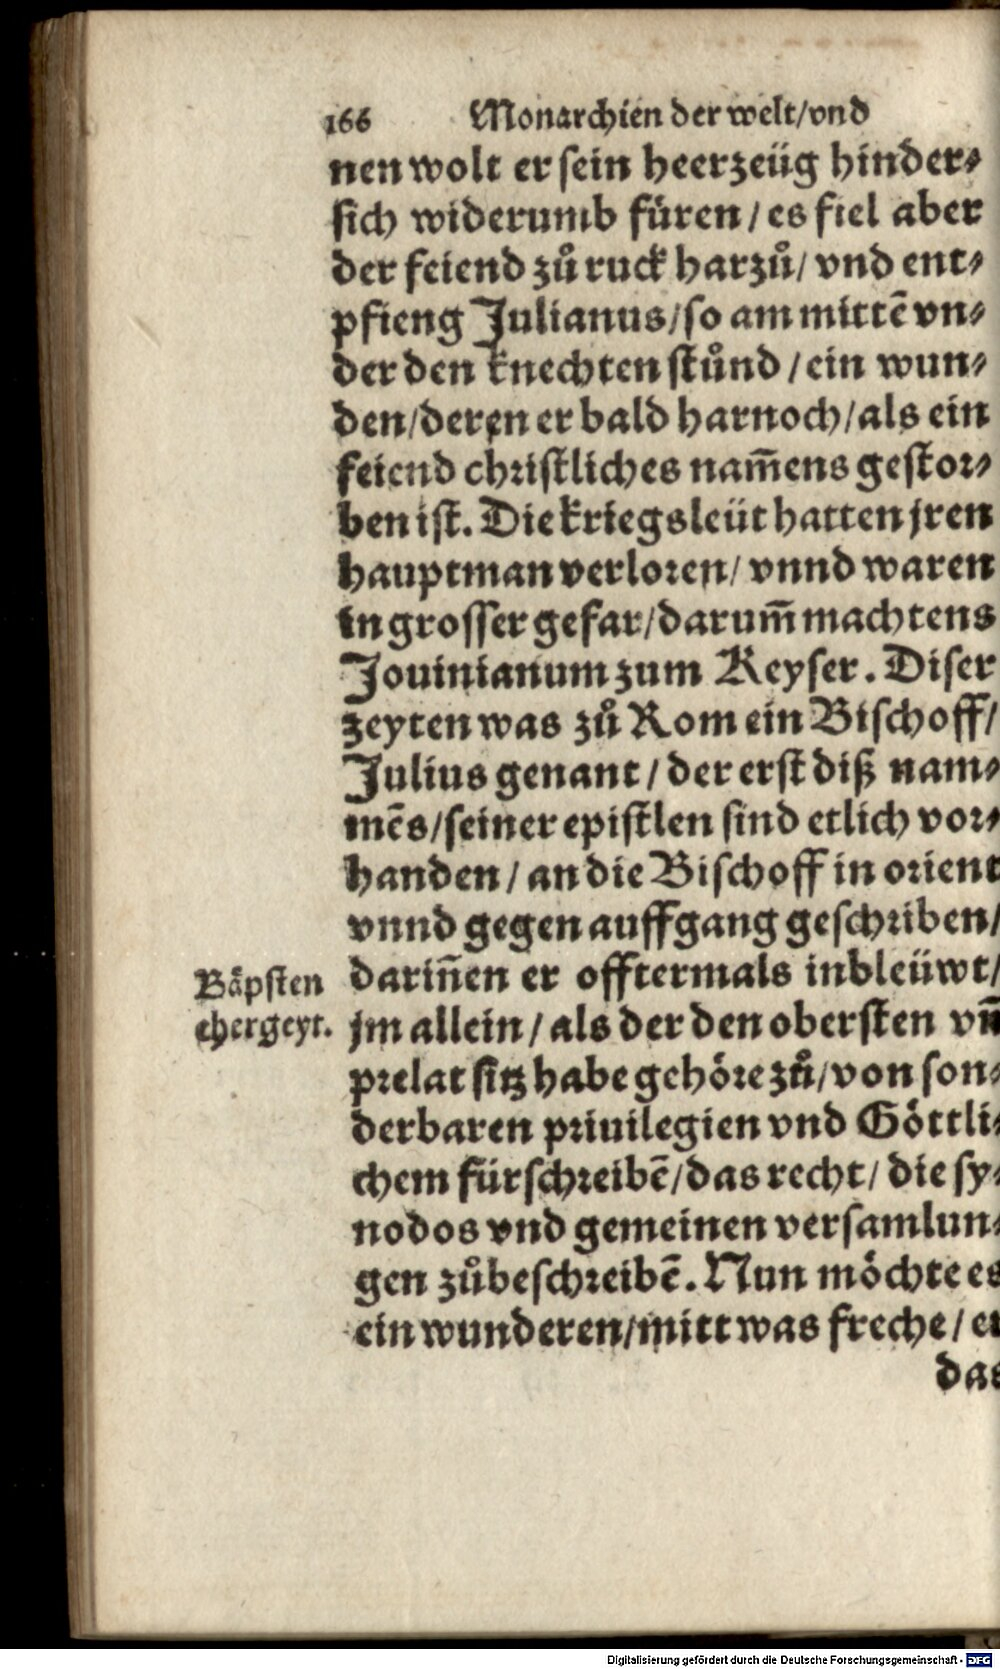 166 Monarchien der welt/vnd
nen wolt er sein heerzeüg hinder⸗
sich widerumb füren/es fiel aber
der feiend zů ruck harzů/vnd ent⸗
pfieng Julianus/so am mittē vn⸗
der den knechten stůnd/ein wun⸗
den/deren er bald harnoch/als ein
feiend christliches nam̄ens gestor⸗
ben ist. Die kriegsleüt hatten jren
hauptman verloren/vnnd waren
in grosser gefar/darum̄ machtens
Jouinianum zum Keyser. Diser
zeyten was zů Rom ein Bischoff/
Julius genant/der erst diß nam⸗
mēs/seiner epistlen sind etlich vor⸗
handen/an die Bischoff in orient
vnnd gegen auffgang geschriben/
Bäpsten
ehergeyt.
darin̄en er offtermals inbleüwt/
jm allein/als der den obersten vn̄
prelat sitz habe gehöre zů/von son⸗
derbaren priuilegien vnd Göttli⸗
chem fürschreibē/das recht/die sy⸗
nodos vnd gemeinen versamlun⸗
gen zůbeschreibē. Nun möchte es
ein wunderen/mitt was freche/er
das
Digitalisierung gefördert durch die Deutsche Forschungsgemeinschaft - DFG